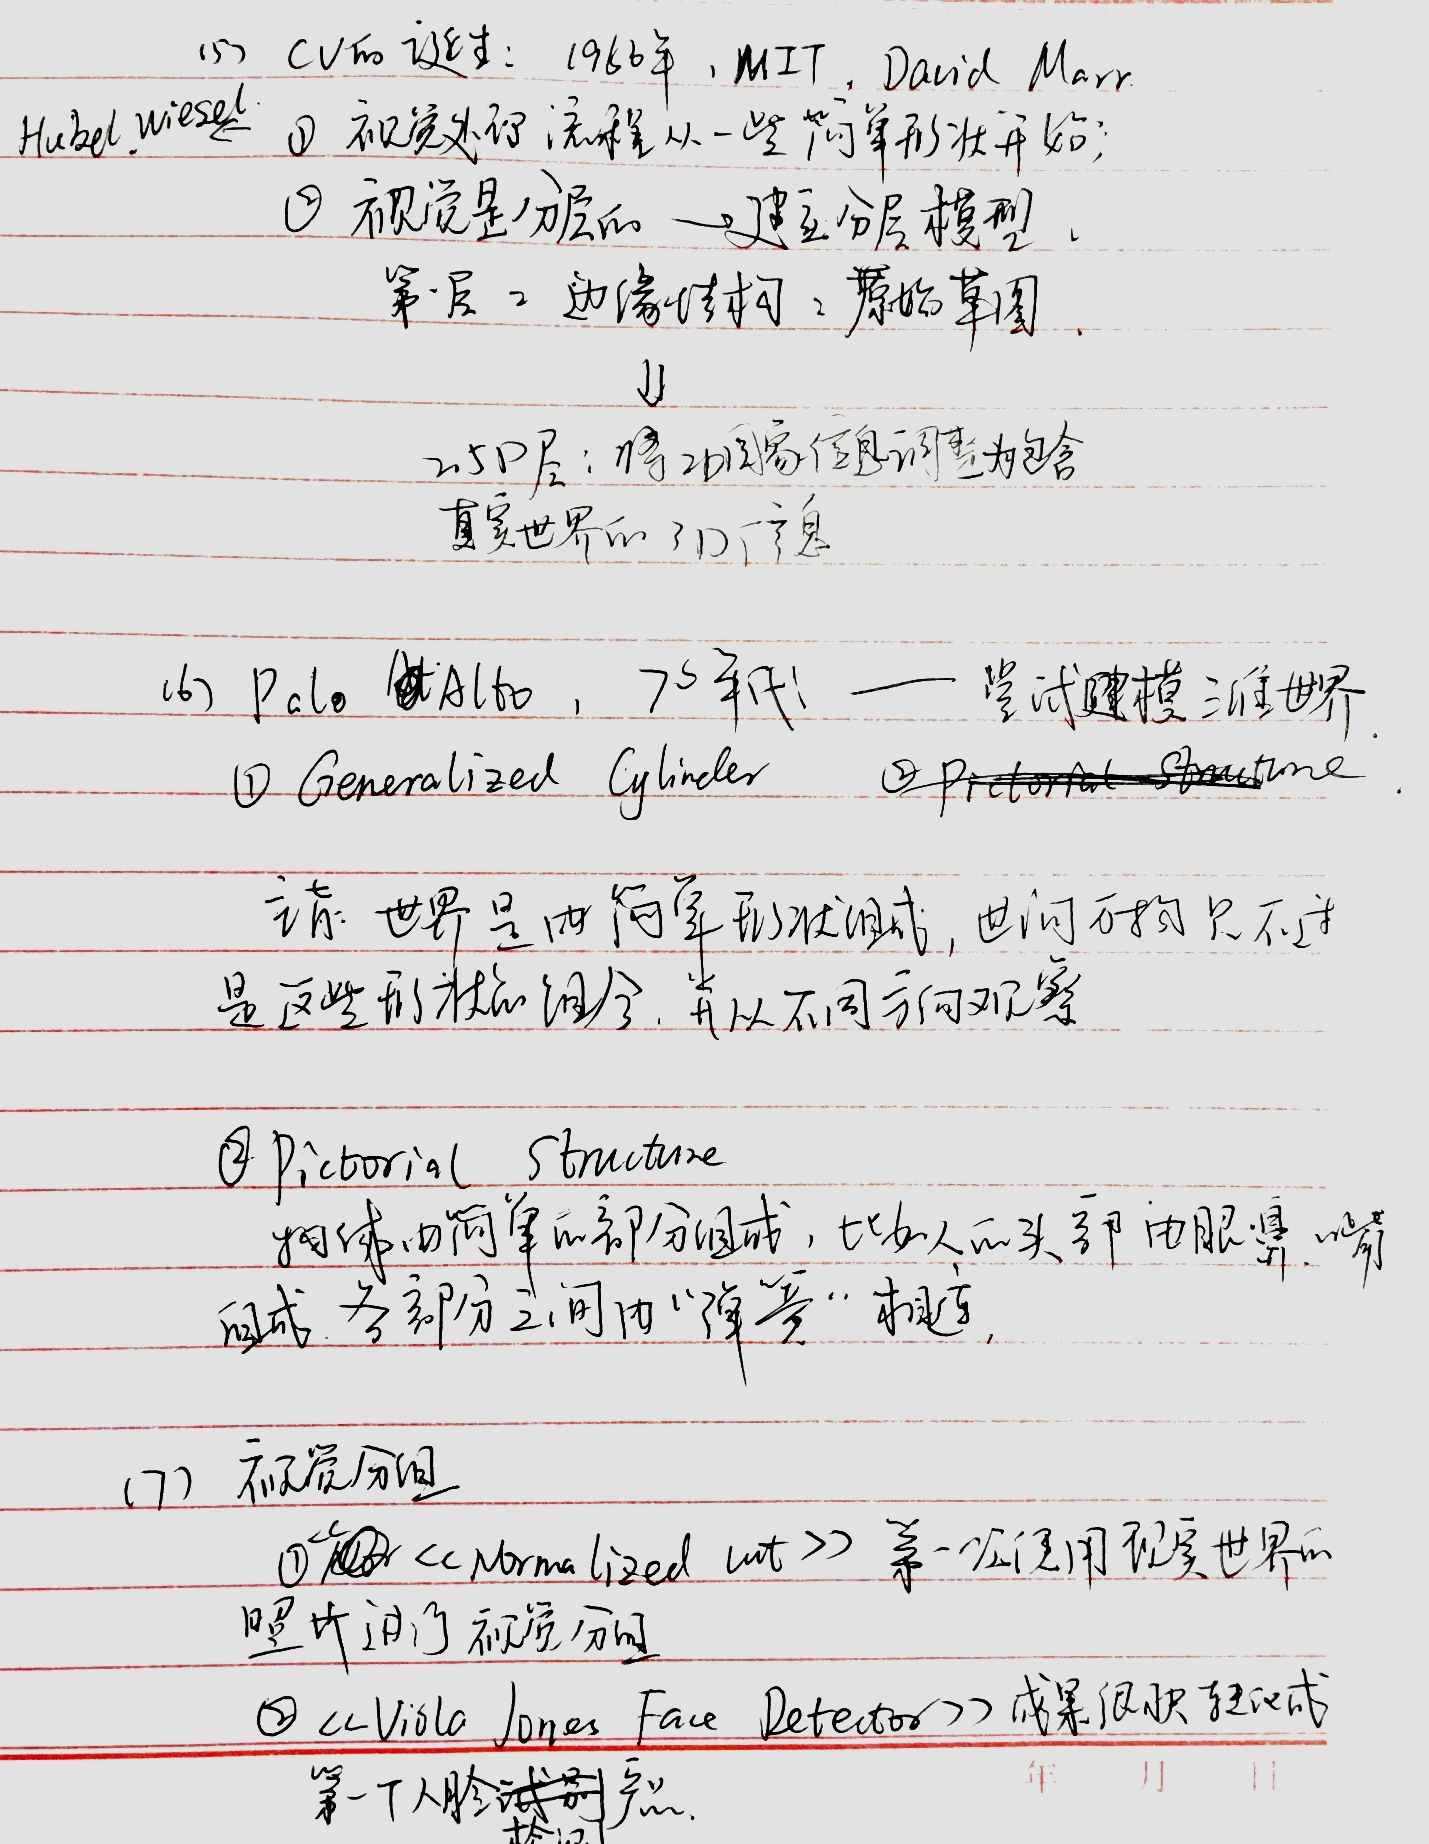 (5) CV的诞生: 1966年, MIT, David Marr
Hubel. Wiesel.
① 视觉处理流程从一些简单形状开始;
② 视觉是分层的 →建立分层模型.
第一层: 边缘结构: 原始草图.
⇓
2.5D层: 将2D图象信息调整为包含
真实世界的3D信息
(6) Palo Alto, 70年代 —— 尝试建模三维世界.
① Generalized Cylinder ② Pictorial Structure
世界是由简单形状组成, 世间万物只不过
是这些形状的组合. 并从不同方向观察
② Pictorial Structure
物体由简单的部分组成, 比如人的头部由眼.鼻.嘴
组成. 各部分之间由“弹簧”相连,
(7) 视觉分组
① <<Normalized cut>> 第一次使用现实世界的
照片进行视觉分组
② <<Viola Jones Face Detector>> 成果很快转化成
年 月 日
第一个人脸识别产品.
检测